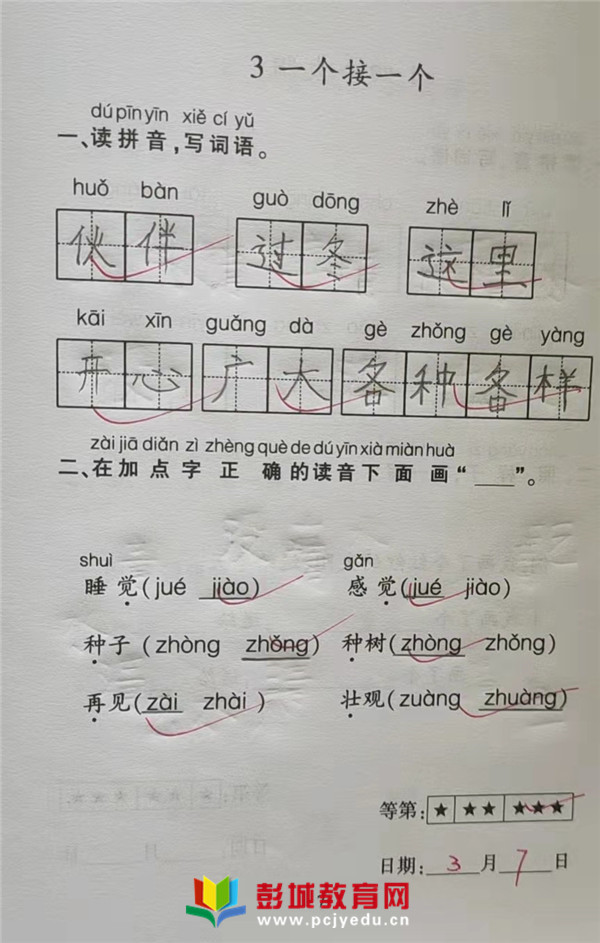 3 一个接一个
dú pīn yīn xiě cí yǔ
一、读拼音,写词语。
huǒ bàn guò dōng zhè lǐ
伙伴 过冬 这里
kāi xīn guǎng dà gè zhǒng gè yàng
开心 广大 各种各样
zài jiā diǎn zì zhèng què de dú yīn xià miàn huà
二、在加点字正确的读音下面画“___”。
shuì gǎn
睡觉(jué jiào) 感觉(jué jiào)
种子(zhòng zhǒng) 种树(zhòng zhǒng)
再见(zài zhài) 壮观(zuàng zhuàng)
等第: ★ ★★ ★★★
日期: 3 月 7 日
彭城教育网
www.pcjyedu.cn